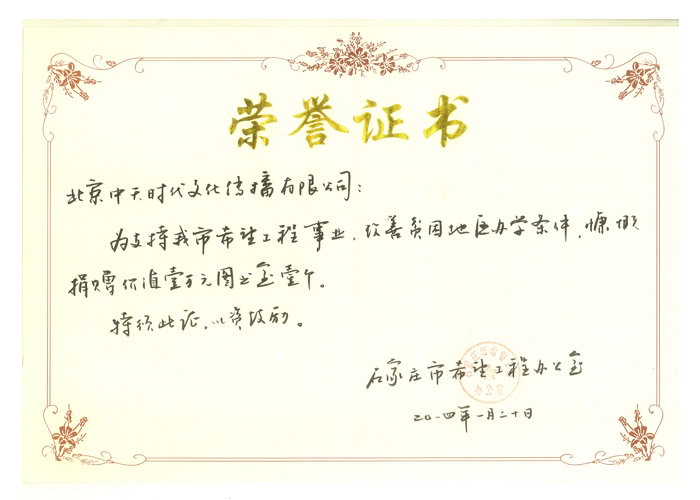 荣誉证书
北京中天时代文化传播有限公司：
为支持我市希望工程事业，改善贫困地区办学条件，慷慨
捐赠价值壹万元图书室壹个。
特颁此证，以资鼓励。
石家庄市希望工程办公室
二〇一四年一月二十日